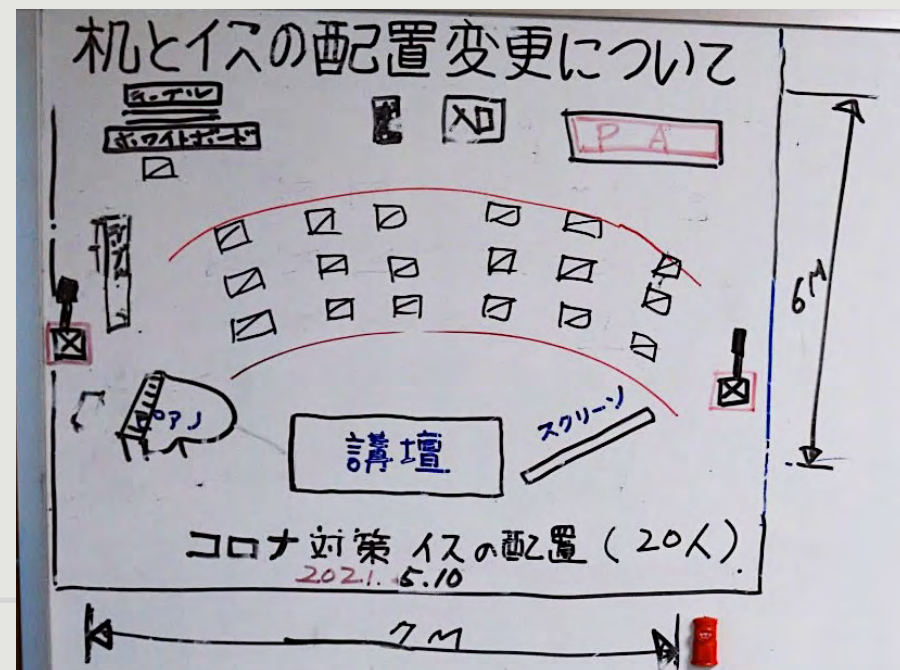 机とイスの配置変更について
テーブル
ホワイトボード
入口
PA
6M
ピアノ
講壇
スクリーン
コロナ対策イスの配置(20人)
2021.5.10
7M